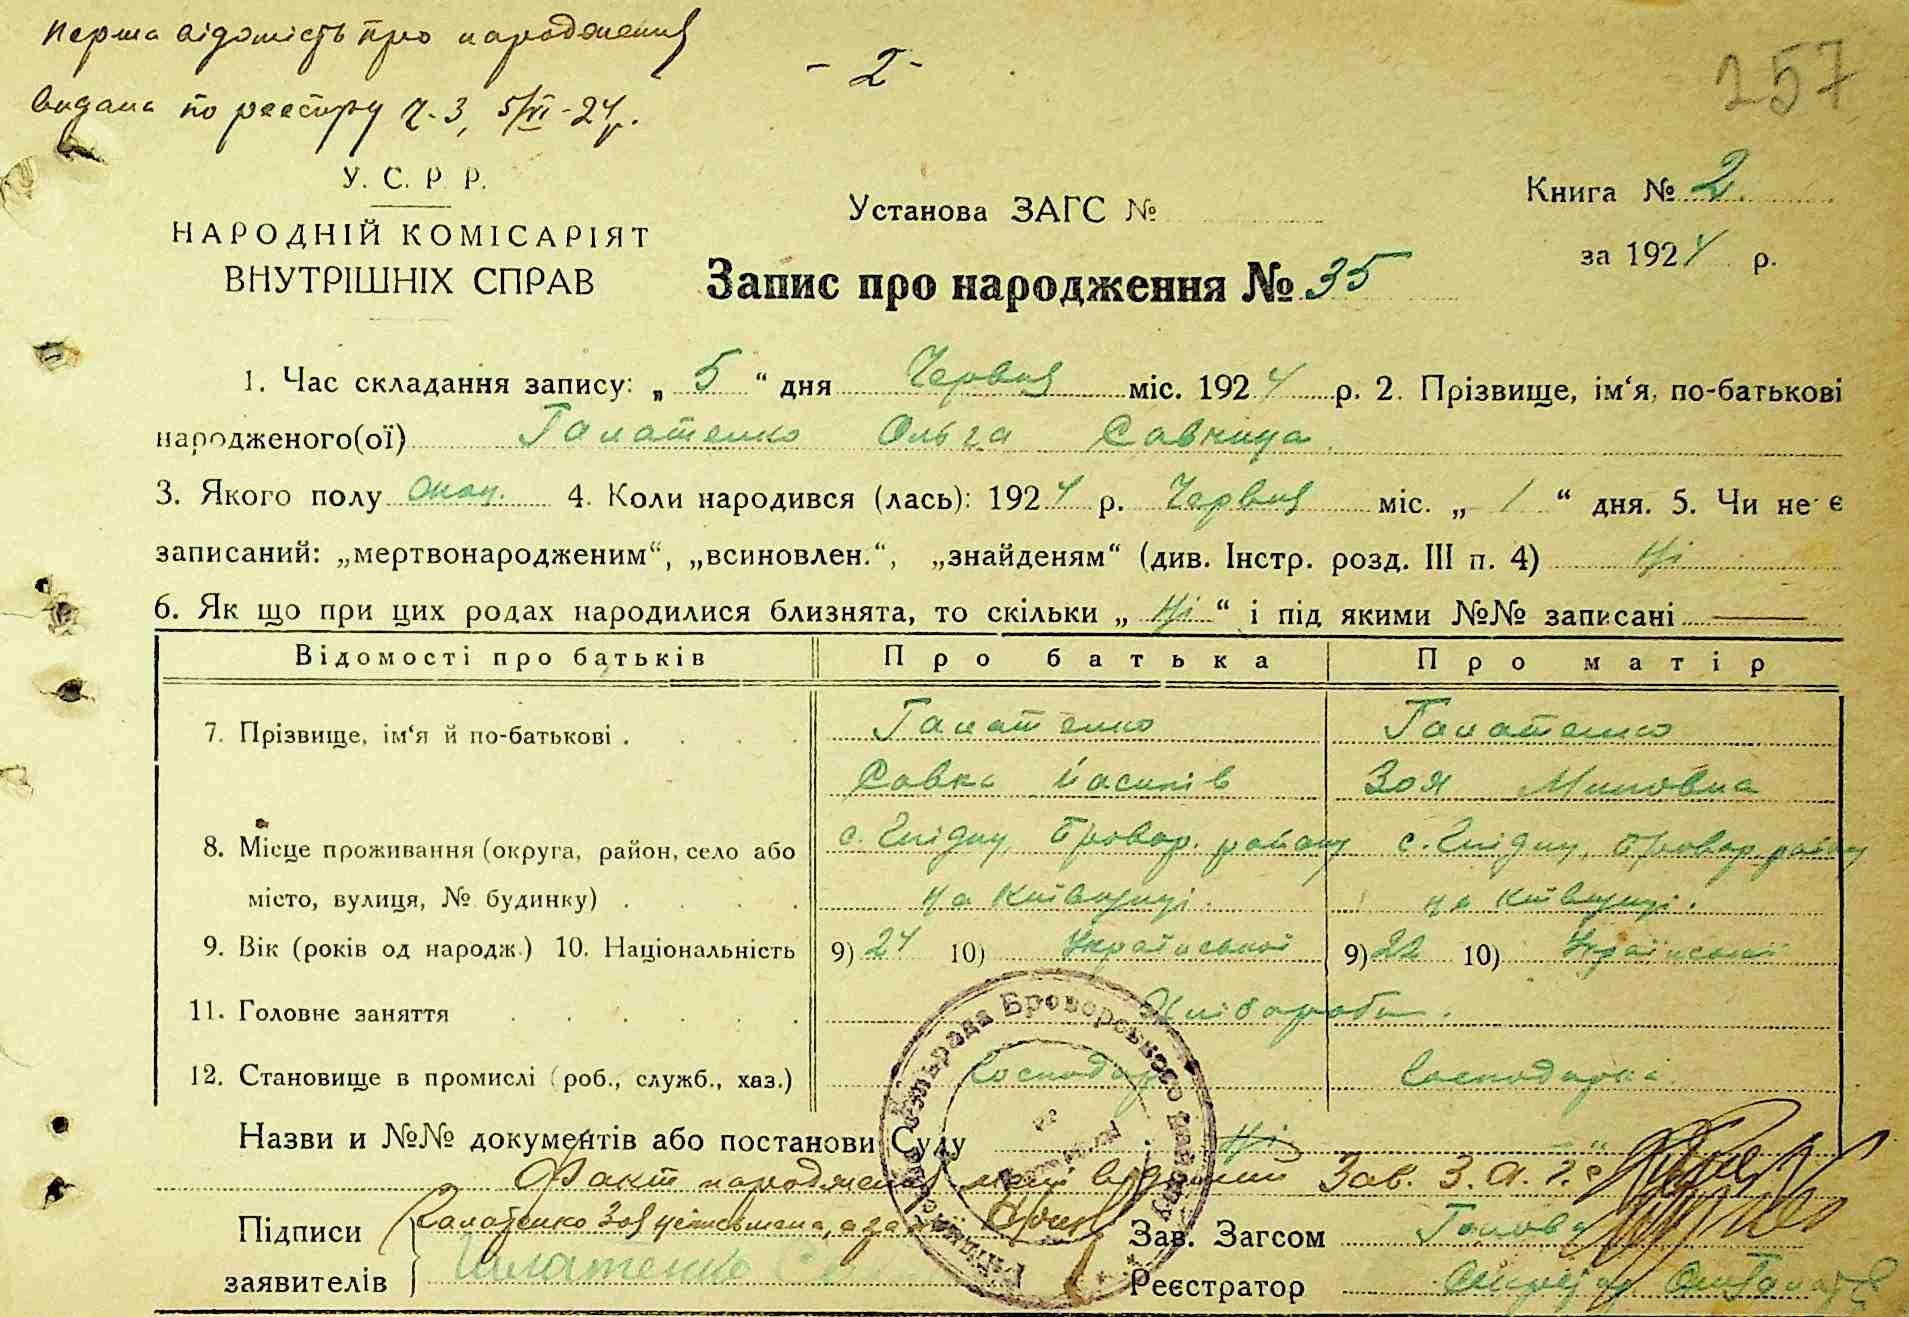 Перша відомість про народження
видана по реєстру ч. 3, 5/VI-24 р.
- 2 -
257
У. С. Р. Р.
НАРОДНІЙ КОМІСАРІЯТ
ВНУТРІШНІХ СПРАВ
Установа ЗАГС №
Книга № 2.
за 1924 р.
Запис про народження № 35
1. Час складання запису: „ 5 “ дня Червня міс. 1924 р. 2. Прізвище, ім‘я, по-батькові
народженого(ої) Галатенко Ольга Савчица
3. Якого полу 4. Коли народився (лась): 1924 р. Червня міс. „ 1 “ дня. 5. Чи не є
записаний: „мертвонародженим“, „всиновлен.“, „знайденям“ (див. Інстр. розд. III п. 4) Ні
6. Як що при цих родах народилися близнята, то скільки „ Ні “ і під якими №№ записані
Відомості про батьків Про батька Про матір
7. Прізвище, ім‘я й по-батькові . Галатенко Галатенко
Савка Зоя
8. Місце проживання (округа, район, село або с. Гнідин, Бровар. району с. Гнідин, Бровар. району
місто, вулиця, № будинку) . на Київщині. на Київщині.
9. Вік (років од народж.) 10. Національність 9) 24 10) Української 9) 22 10) Української
11. Головне заняття Хлібороби.
12. Становище в промислі (роб., служб., хаз.) Господар Господарка
Назви и №№ документів або постанови Суду Ні
Факт народження мені відомий Зав. З.А.Г.С.
Підписи Галатенко Зоя неписьмена, а за неї Зав. Загсом Голова
заявителів Галатенко Реєстратор Секретар
сільрада Броворського району